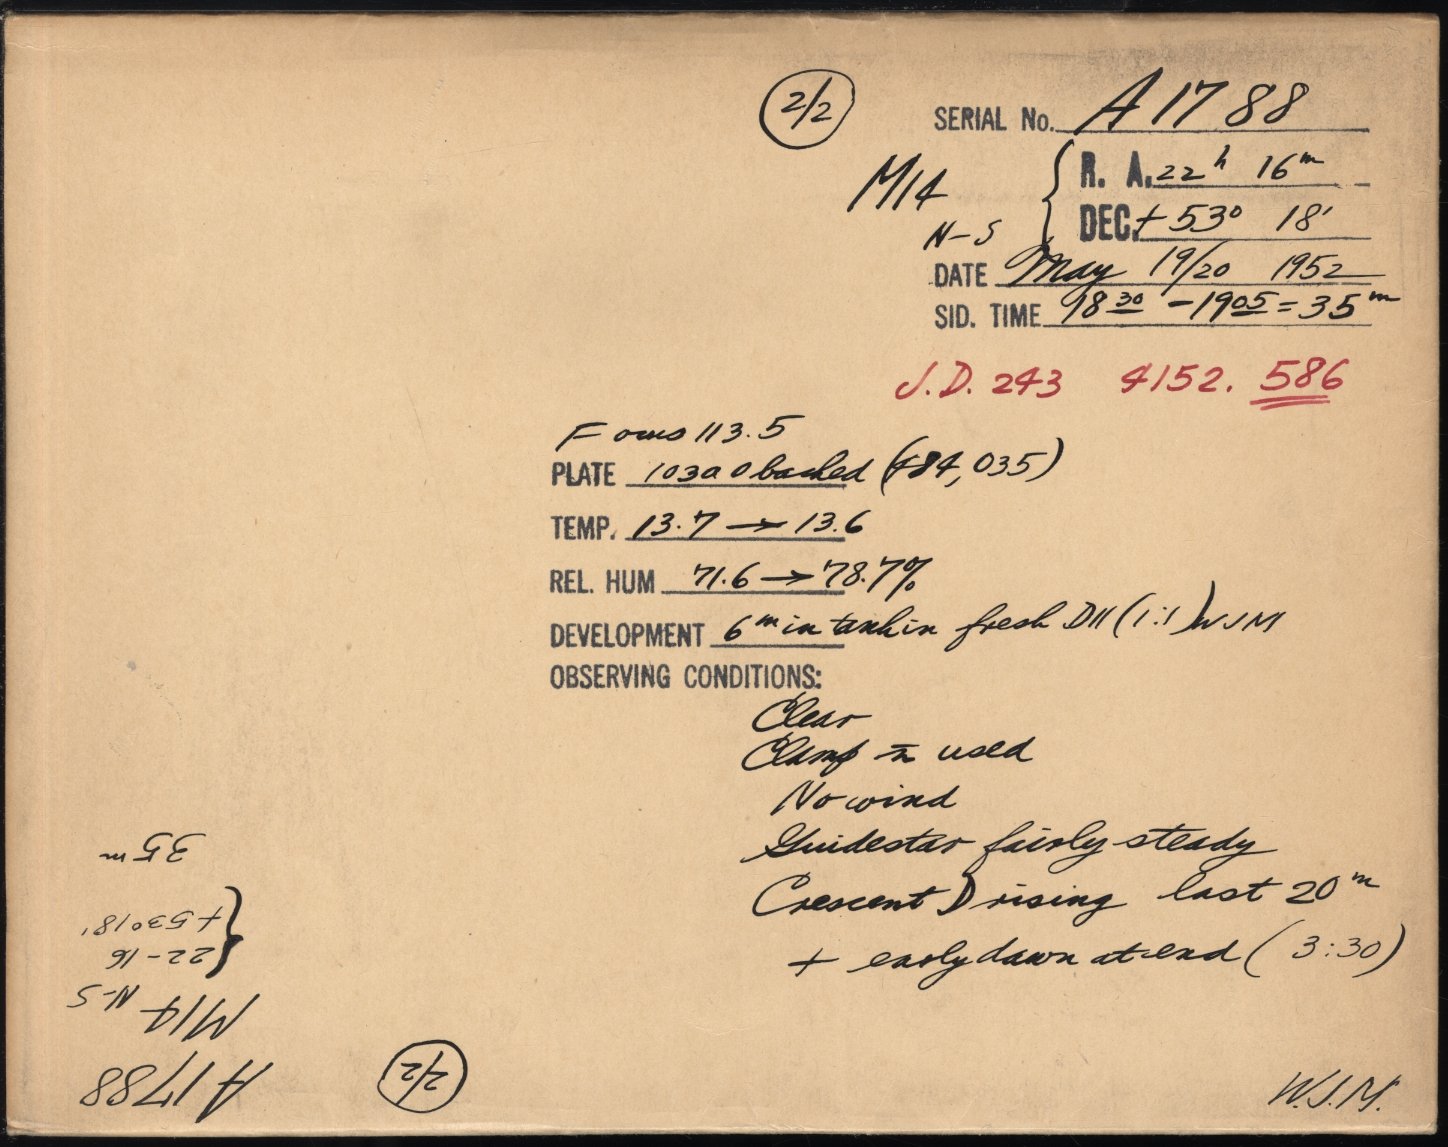 2/2
SERIAL No. A1788
M14
N-S
R. A. 22h 16m
DEC. +53° 18'
DATE May 19/20 1952
SID. TIME 18 30 - 19 05 = 35m
J.D. 243 4152. 586
Focus 113.5
PLATE 103a O backed (484,035)
TEMP. 13.7 → 13.6
REL. HUM 71.6 → 78.7%
DEVELOPMENT 6m in tank in fresh D11 (1:1) WJM
OBSERVING CONDITIONS:
Clear
Clamp used
No wind
Guidestar fairly steady
Crescent rising last 20m
+ early dawn at end (3:30)
W.J.M.
A1788
2/2
M14
N-S
22-16
+53°18'
35m